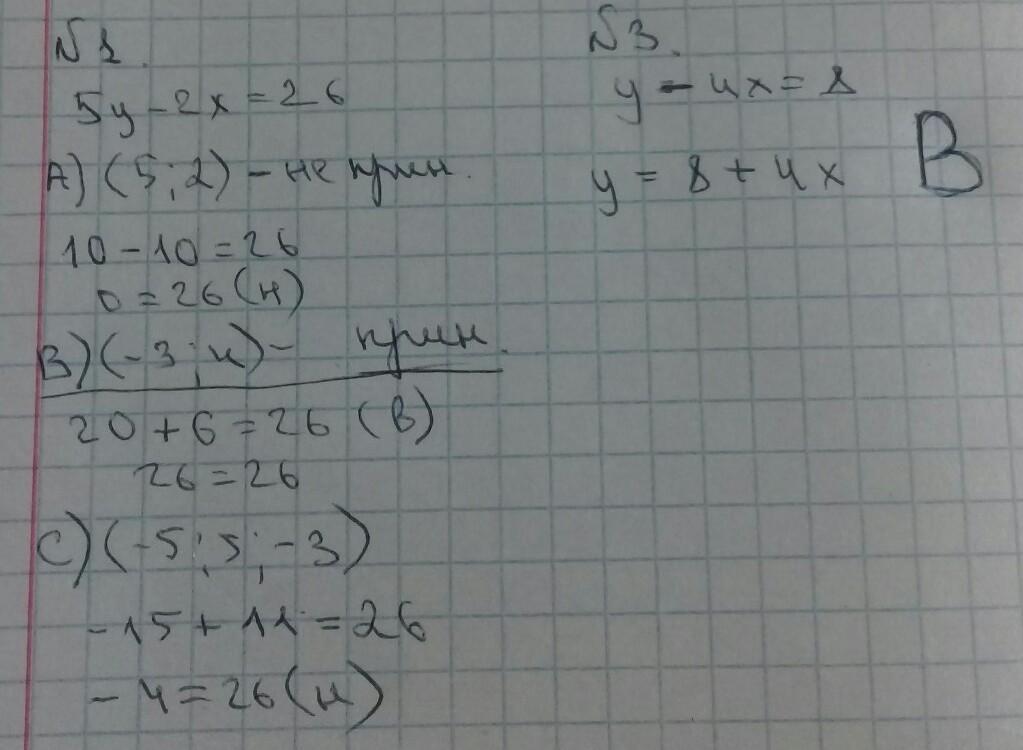 №1.
5y-2x=26
А) (5;2) - не прин.
10-10=26
0=26(н)
В) (-3;4) - прин.
20+6=26 (В)
26=26
С) (-5;5;-3)
-15+11=26
-4=26(н)
№3.
y-4x=8
y=8+4x
В